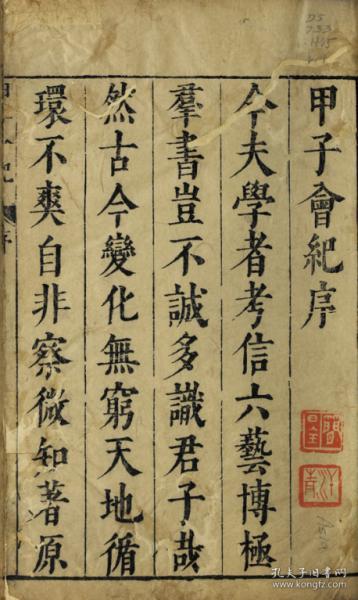 甲子會紀序
今夫學者考信六藝博極
羣書豈不誠多識君子哉
然古今變化無窮天地循
環不爽自非察微知著原
孔夫子旧书网